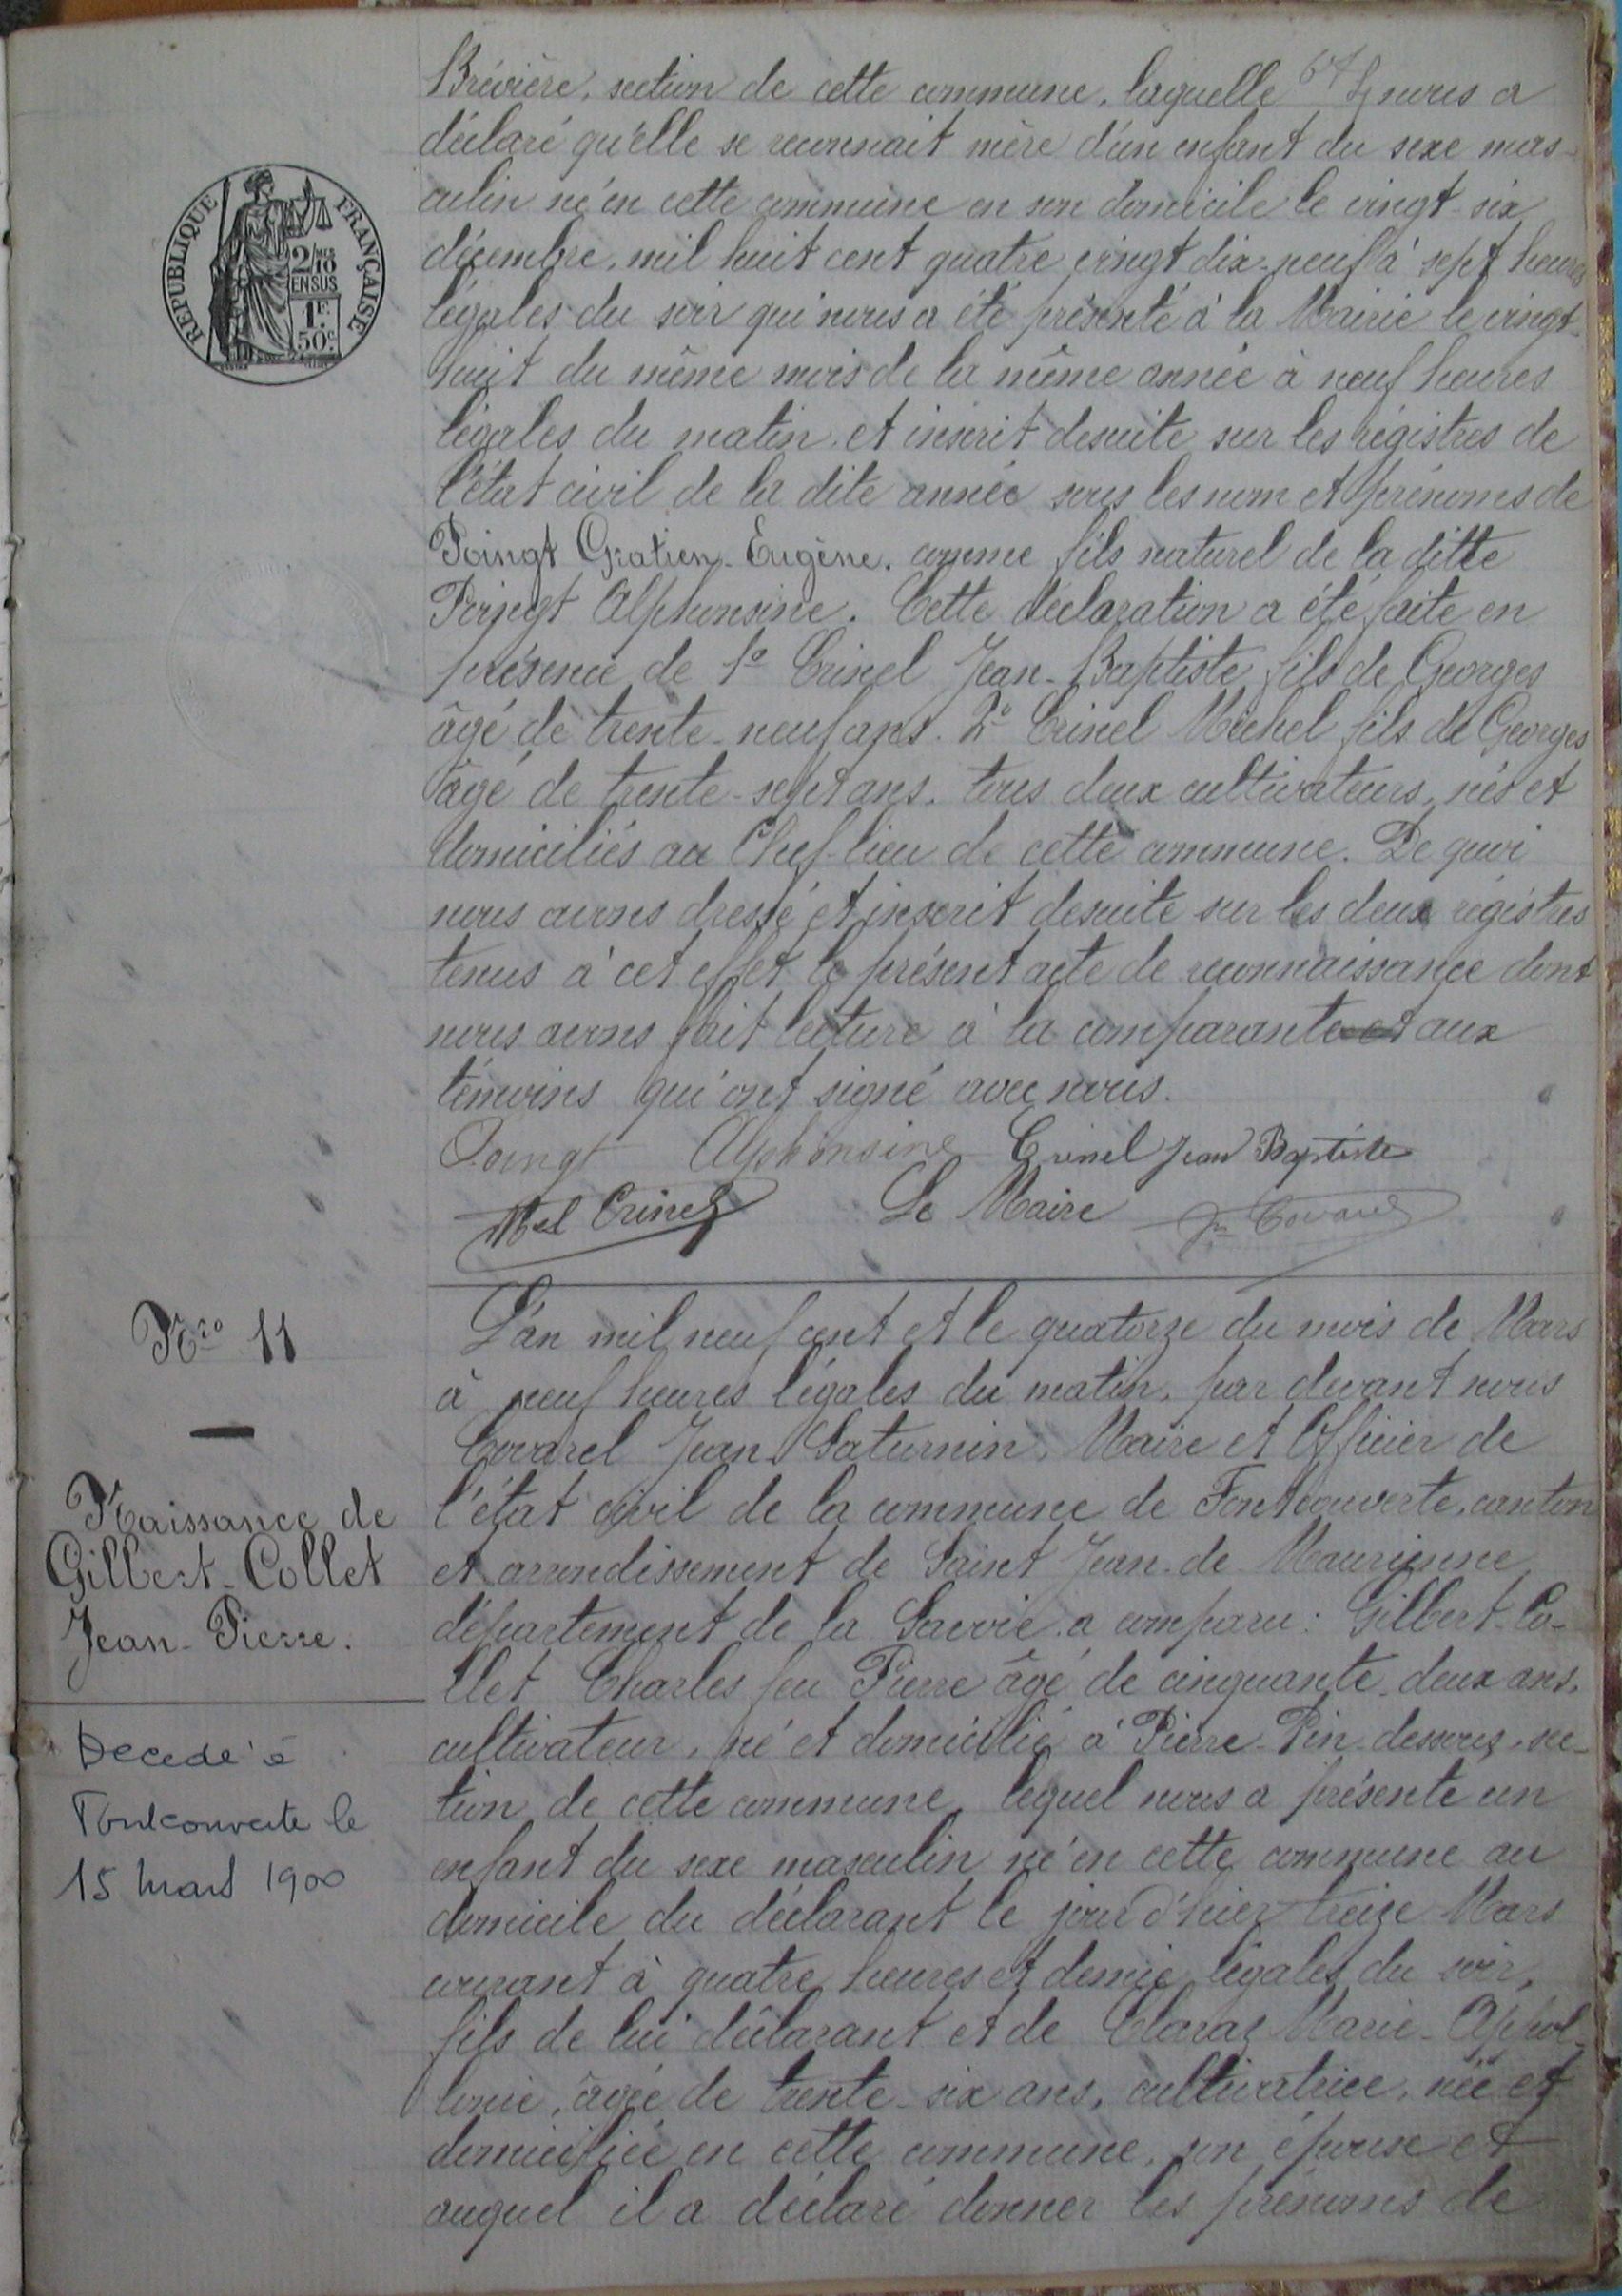 Brévière, section de cette commune, laquelle nous a
déclaré qu'elle se reconnait mère d'un enfant du sexe mas-
culin né en cette commune en son domicile le vingt-six
décembre, mil huit cent quatre vingt dix-neuf à sept heures
légales du soir qui nous a été présenté à la Mairie le vingt-
huit du même mois de la même année à neuf heures
légales du matin et inscrit desuite sur les régistres de
l'état civil de la dite année sous les nom et prénoms de
Poingt Gratien-Eugène, comme fils naturel de la ditte
Poingt Alphonsine. Cette déclaration a été faite en
présence de 1º Crinel Jean-Baptiste fils de Georges
âgé de trente-neuf ans. 2º Crinel Michel fils de Georges
âgé de trente-sept ans, tous deux cultivateurs, nés et
domiciliés au Chef-lieu de cette commune. De quoi
nous avons dressé et inscrit desuite sur les deux régistres
tenus à cet effet le présent acte de reconnaissance dont
nous avons fait lecture à la comparante et aux
témoins qui ont signé avec nous.
Poingt Alphonsine Crinel Jean Baptiste
Mel Crinel Le Maire Jn Covarel
REPUBLIQUE FRANÇAISE
2/10
EN SUS
1F
50c
Nro 11
Naissance de
Gilbert-Collet
Jean-Pierre.
Decedé à
Fontcouverte le
15 mars 1900
L'an mil neuf cent et le quatorze du mois de Mars
à neuf heures légales du matin, par devant nous
Covarel Jean Saturnin, Maire et Officier de
l'état civil de la commune de Fontcouverte, canton
et arrondissement de Saint Jean-de-Maurienne
département de la Savoie a comparu: Gilbert-Co-
llet Charles feu Pierre âgé de cinquante-deux ans,
cultivateur, né et domicilié à Pierre-Pin-dessous, sec-
tion de cette commune, lequel nous a présenté un
enfant du sexe masculin né en cette commune au
domicile du déclarant le jour d'hier treize Mars
courant à quatre heures et demie légales du soir,
fils de lui déclarant et de Claraz Marie-Appol-
lonie, âgée de trente-six ans, cultivatrice, née et
domiciliée en cette commune, son épouse et
auquel il a déclaré donner les prénoms de